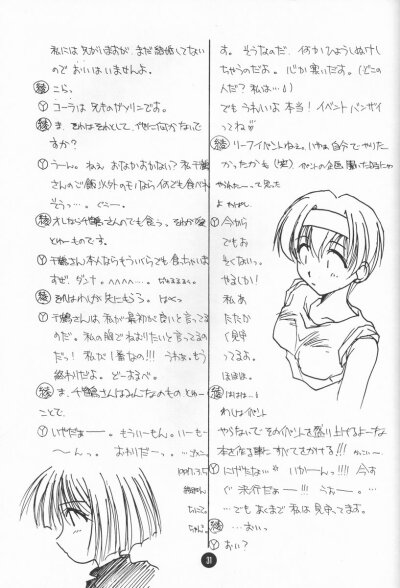 私には兄がいますが、まだ結婚してない
のでおいはいませんよ。
綾 こら。
Y コーラは兄さんのガソリンです。
綾 ま、それはそれとして、他に何かないで
すか?
Y うーん。ねぇ おなかすかない?私 千鶴
さんのご飯以外のモノなら何でも食べれ
そうっ…。ぐぅー。
綾 オレなら千鶴さんのでも食う。それが愛
とゆーものです。
Y 千鶴さん本人ならもういくらでも食っちゃいま
すぜ、ダンナ。へへへへ…。
Y 千鶴さんは、私が最初から良いと言ってる
のだ。私の胸でねむりたいと言ってるの
だっ!私が1番なの!!! うわぁ、もう
終わりだよ。どーすまべ。
綾 ま、千鶴さんはみんなのもの とゆー
ことで。
Y いやだぁー。もういーもん。いーもー
ーんっ。おわりだーっ。
1997.3.5
す。そうなのだ、何かひょうしぬけし
ちゃうのだよ。心が寒いだす。(どこの
人だ?私は…。)
でもうれいよ本当!イベントバンザイ
ってね
綾 リーフイベントねぇ。いやぁ、自分でやりた
かったかも(笑)
Y 今から
でもお
そくないっ。
やるしか!
私 あ
たたか
く見守
ってるよ。
ほほほ。
綾 ははは…。
わしはイベント
やらないでそのイベントを盛り上げるよーな
本を作る事にすべてをかける!!
Y にげたなぁ… いかーんっ!!! 今す
ぐ決行だぁー!!! うおー。…
…でもあくまで私は見守ってます。
綾 …おいっ
Y おい?
31